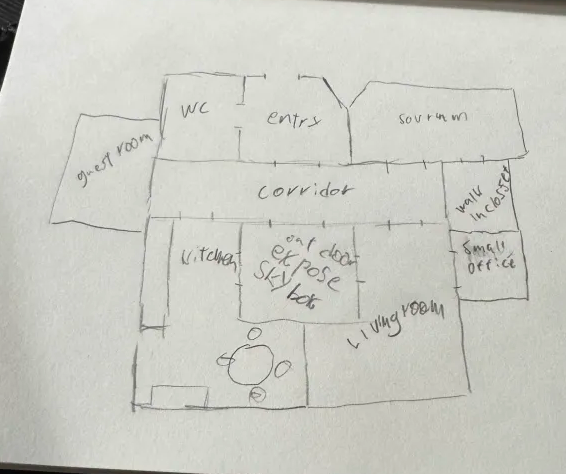 WC
entry
sovrum
guest room
corridor
walk
in closset
kitchen
out door
expose
sky
box
small
office
Livingroom